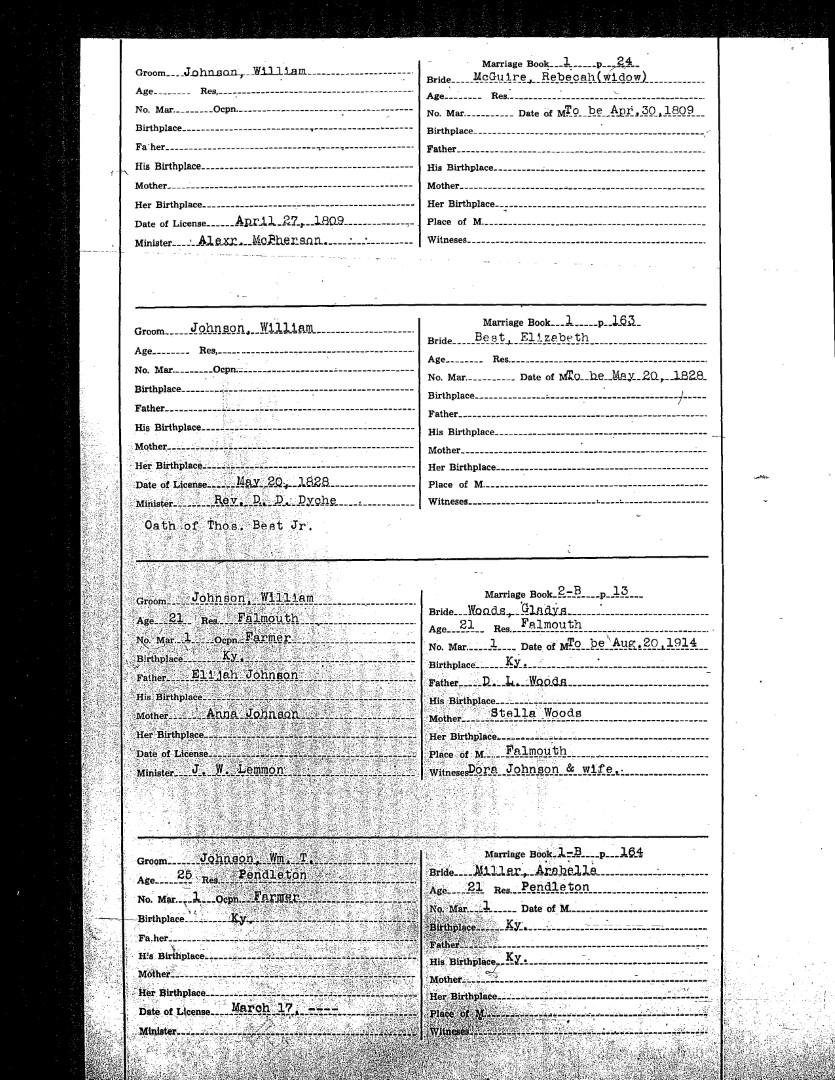 Marriage Book 1 p. 24
Groom Johnson, William
Bride McGuire, Rebecah(widow)
Age Res.
Age Res.
No. Mar. Ocpn.
No. Mar. Date of M To be Apr.30,1809
Birthplace
Birthplace
Father
Father
His Birthplace
His Birthplace
Mother
Mother
Her Birthplace
Her Birthplace
Date of License April 27, 1809
Place of M.
Minister Alexr. McPherson.
Witneses
Marriage Book 1 p. 163
Groom Johnson, William
Bride Best, Elizabeth
Age Res.
Age Res.
No. Mar. Ocpn.
No. Mar. Date of M To be May 20, 1828
Birthplace
Birthplace
Father
Father
His Birthplace
His Birthplace
Mother
Mother
Her Birthplace
Her Birthplace
Date of License May 20, 1828
Place of M.
Minister Rev. D. D. Dyche
Witneses
Oath of Thos. Best Jr.
Marriage Book 2-B p. 13
Groom Johnson, William
Bride Woods, Gladys
Age 21 Res. Falmouth
Age 21 Res. Falmouth
No. Mar. 1 Ocpn. Farmer
No. Mar. 1 Date of M To be Aug.20,1914
Birthplace Ky.
Birthplace Ky.
Father Elijah Johnson
Father D. L. Woods
His Birthplace
His Birthplace
Mother Anna Johnson
Mother Stella Woods
Her Birthplace
Her Birthplace
Date of License
Place of M. Falmouth
Minister J. W. Lemmon
Witneses Dora Johnson & wife.
Marriage Book 1-B p. 164
Groom Johnson, Wm. T.
Bride Millar, Arabella
Age 25 Res. Pendleton
Age 21 Res. Pendleton
No. Mar. 1 Ocpn. Farmer
No. Mar. 1 Date of M.
Birthplace Ky.
Birthplace Ky.
Father
Father
His Birthplace
His Birthplace Ky.
Mother
Mother
Her Birthplace
Her Birthplace
Date of License March 17, ----
Place of M.
Minister
Witneses